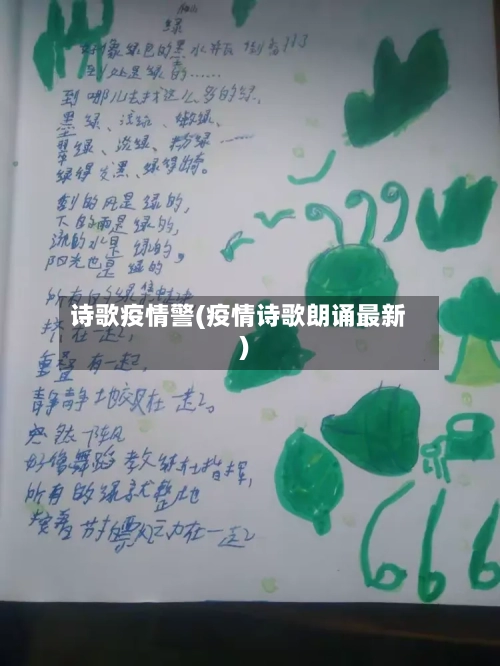 绿
好像绿色的墨水瓶倒翻了
到处是绿的……
到哪儿去找这么多的绿,
墨绿、浅绿、嫩绿、
翠绿、淡绿、粉绿……
绿得发黑、绿得出奇。
刮的风是绿的,
下的雨是绿的,
流的水是绿的,
阳光也是绿的
所有的绿集中
诗歌疫情警(疫情诗歌朗诵最新
)
挤在一起,
重叠在一起,
静静地交叉在一起。
突然一阵风
好像舞蹈教练在指挥,
所有的绿就整
按着节拍飘动在一起